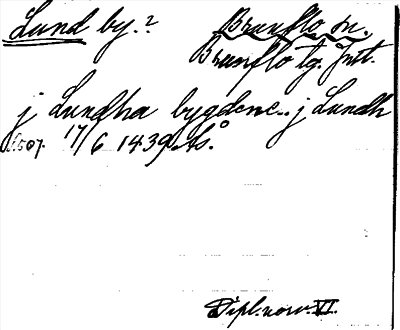 Lund by.? Brunflo sn.
Brunflo tg. Jmt.
j Lundha bygdene.. j Lundh
s. 507. 17/6 1439 Ås.
Dipl. norv. VI.